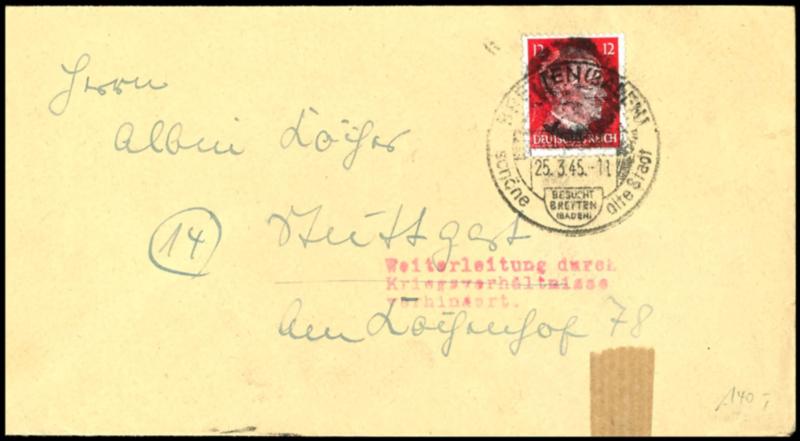 12 12
DEUTSCHES REICH
BRETTEN (BADEN)
25.3.45.-11
BESUCHT
BRETTEN
(BADEN)
schöne alte Stadt
Herrn
Albin
14 Stuttgart
Weiterleitung durch
Kriegsverhältnisse
verhindert.
Am 78
140,-